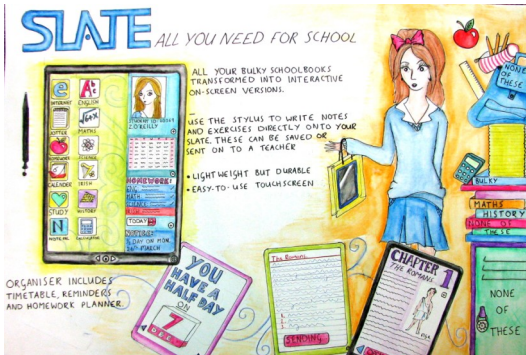 SLATE ALL YOU NEED FOR SCHOOL
ALL YOUR BULKY SCHOOLBOOKS
TRANSFORMED INTO INTERACTIVE
ON-SCREEN VERSIONS.
USE THE STYLUS TO WRITE NOTES
AND EXERCISES DIRECTLY ONTO YOUR
SLATE. THESE CAN BE SAVED OR
SENT ON TO A TEACHER
• LIGHTWEIGHT BUT DURABLE
• EASY-TO-USE TOUCHSCREEN
INTERNET
ENGLISH
JOTTER
MATHS
HOMEWORK
SCIENCE
CALENDER
IRISH
STUDY
HISTORY
CALCULATOR
Z.O'REILLY
HOMEWORK:
TODAY
NOTICE:
½ DAY ON MON.
MARCH
ORGANISER INCLUDES
TIMETABLE, REMINDERS
AND HOMEWORK PLANNER.
YOU
HAVE A
HALF DAY
ON
7
DEC
The Romans
SENDING
CHAPTER 1
THE ROMANS
NONE
OF
THESE
BULKY
MATHS
HISTORY
NONE OF
THESE
NONE
OF
THESE